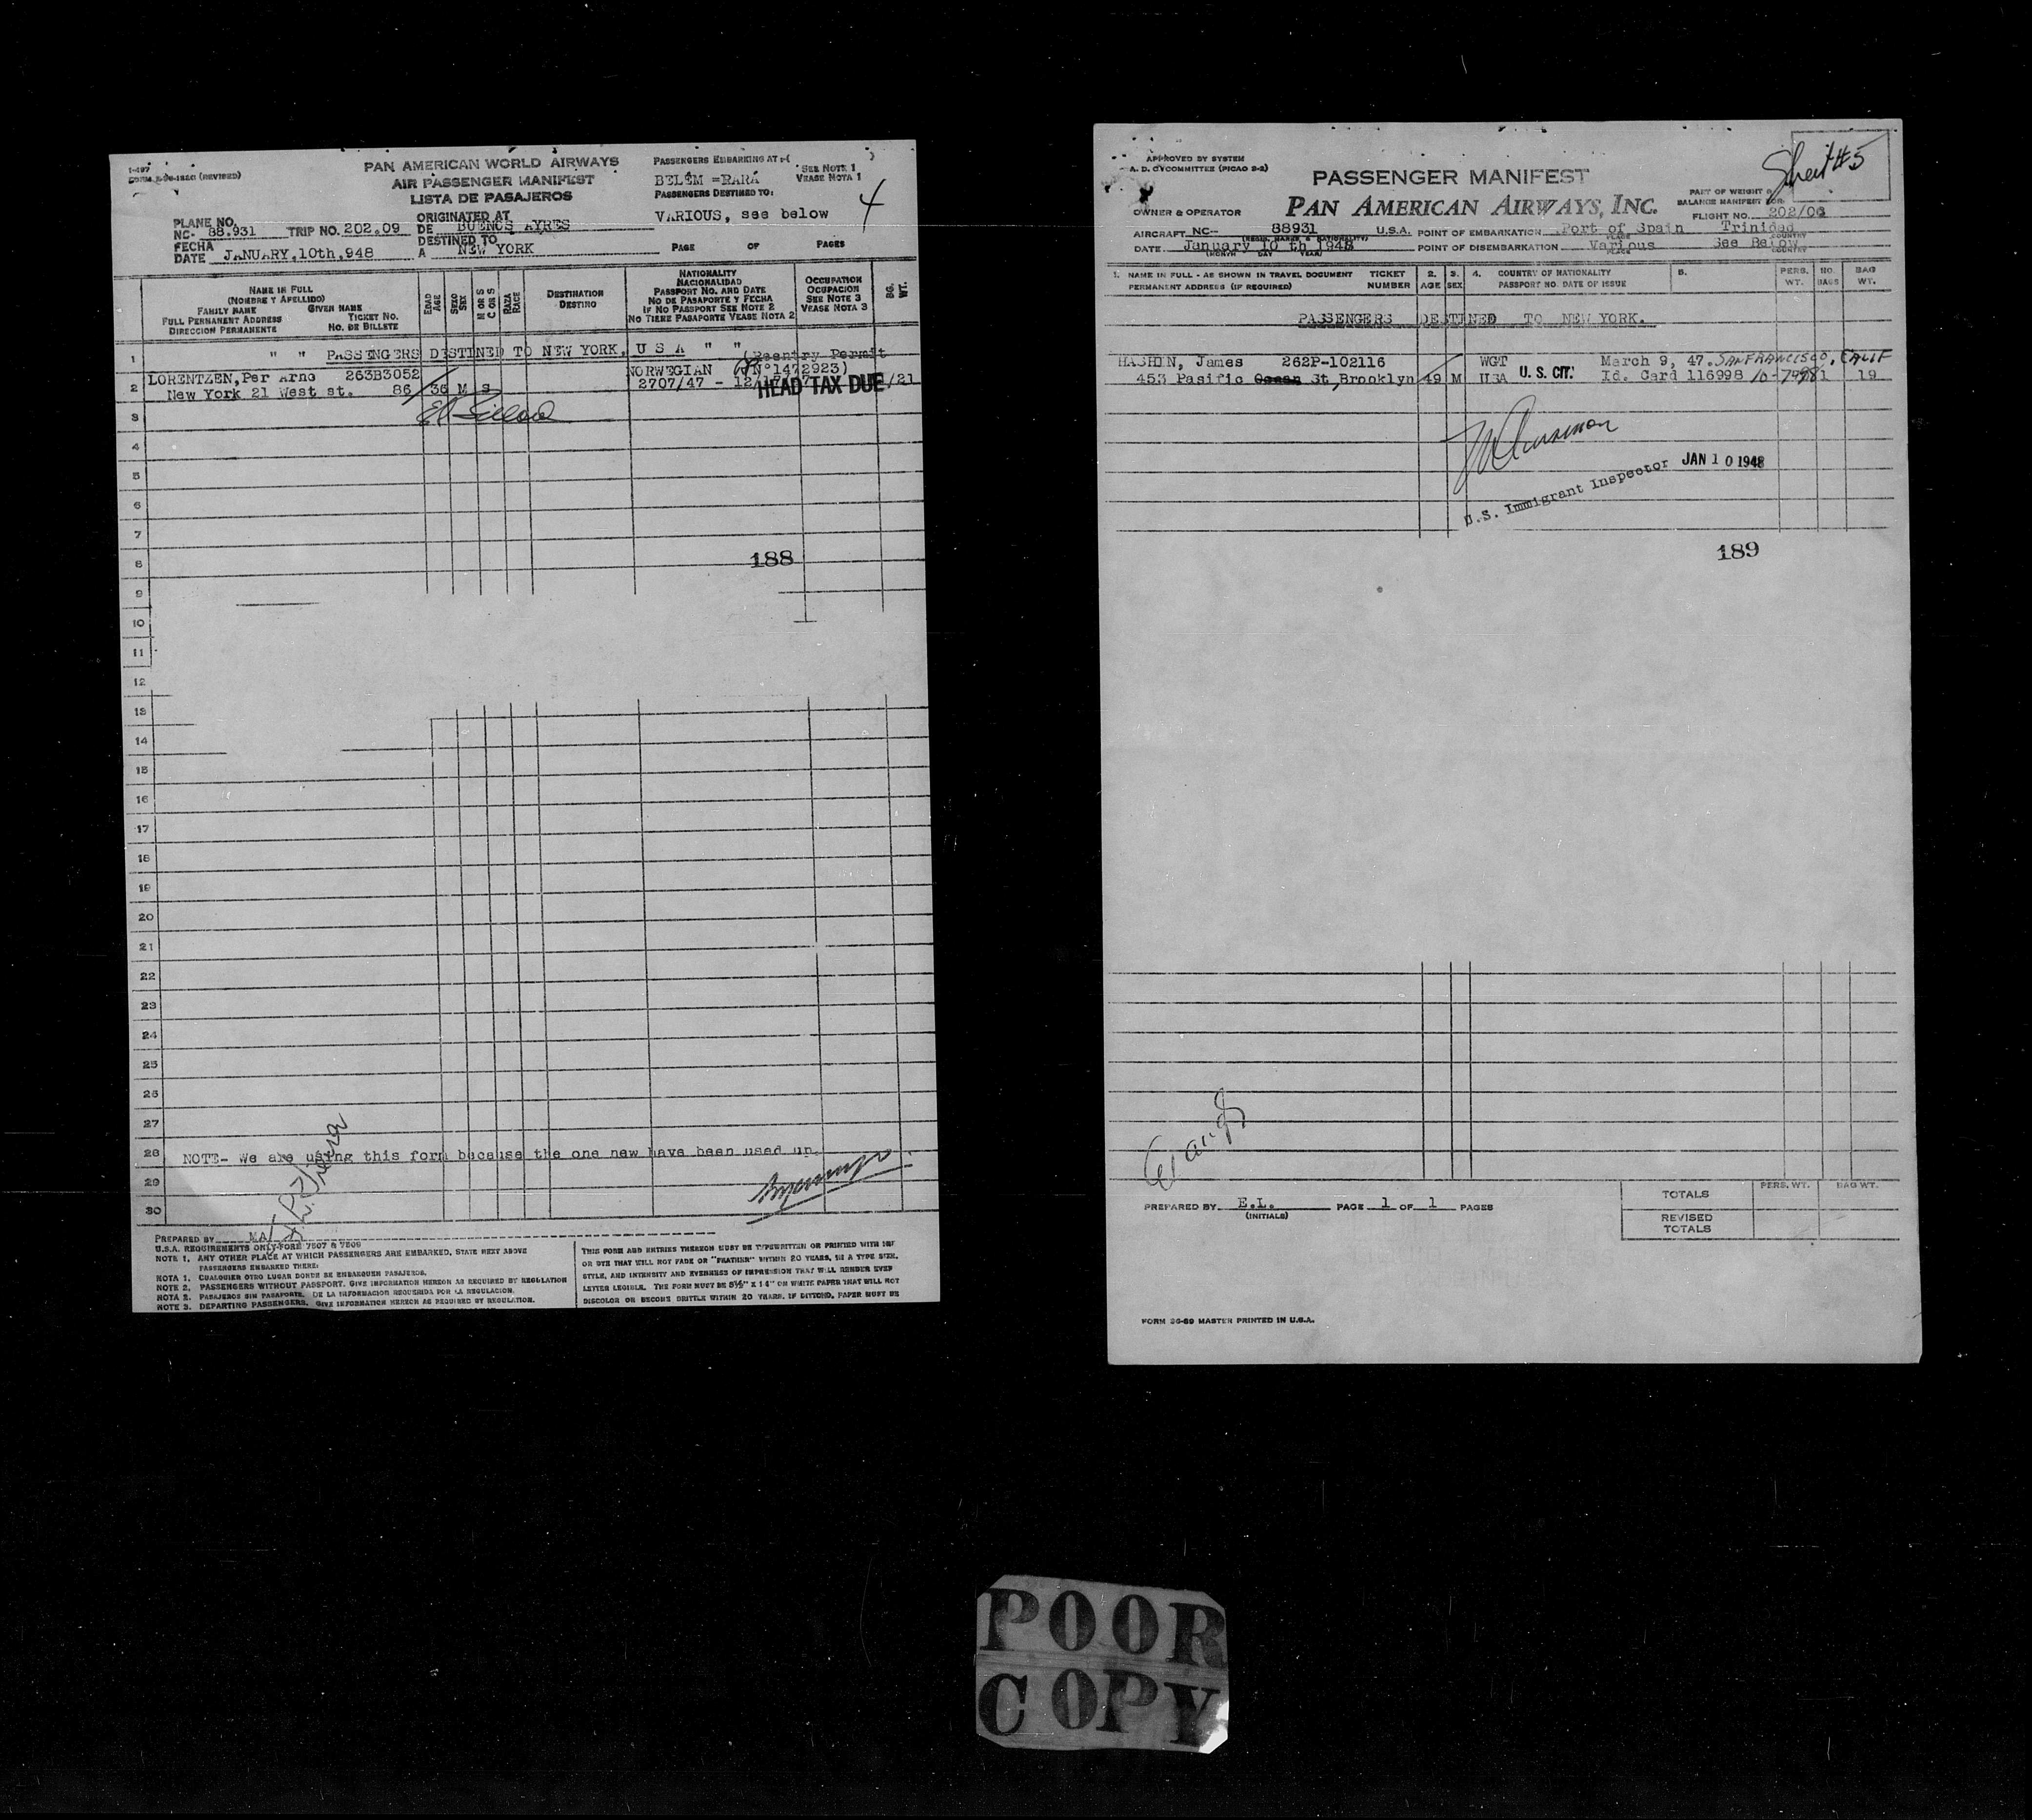 I-497
FORM (REVISED)
PAN AMERICAN WORLD AIRWAYS
AIR PASSENGER MANIFEST
LISTA DE PASAJEROS
PASSENGERS EMBARKING AT :-( )
BELÉM =PARÁ
SEE NOTE 1
VEASE NOTA 1
PASSENGERS DESTINED TO:
VARIOUS, see below
4
PLANE NO.
NC- 88.931 TRIP NO. 202.09
ORIGINATED AT
DE BUENOS AYRES
FECHA
DATE JANUARY,10th,948
DESTINED TO
A NEW YORK
PAGE OF PAGES
NAME IN FULL
(NOMBRE Y APELLIDO)
FAMILY NAME GIVEN NAME
FULL PERMANENT ADDRESS TICKET NO.
DIRECCION PERMANENTE NO. DE BILLETE
EDAD
AGE
SEXO
SEX
M OR S
C O S
RAZA
RACE
DESTINATION
DESTINO
NATIONALITY
NACIONALIDAD
PASSPORT NO. AND DATE
NO DE PASAPORTE Y FECHA
IF NO PASSPORT SEE NOTE 2
NO TIENE PASAPORTE VEASE NOTA 2
OCCUPATION
OCUPACION
SEE NOTE 3
VEASE NOTA 3
BG.
WT.
1 " " PASSENGERS DESTINED TO NEW YORK, U S A " "
(Reentry Permit
LORENTZEN,Per Arno 263B3052 NORWEGIAN Nº1472923)
2 New York 21 West st. 86 36 M S 2707/47 - 12/17 /21
HEAD TAX DUE
3
4
5
6
7
188
8
9
10
11
12
13
14
15
16
17
18
19
20
21
22
23
24
25
26
27
28 NOTE- We are using this form because the one new have been used up.
29
30
PREPARED BY MA
U.S.A. REQUIREMENTS ONLY-FORE 7507 & 7509
NOTE 1. ANY OTHER PLACE AT WHICH PASSENGERS ARE EMBARKED, STATE NEXT ABOVE
PASSENGERS EMBARKED THERE:
NOTA 1. CUALQUIER OTRO LUGAR DONDE SE EMBARQUEN PASAJEROS.
NOTE 2. PASSENGERS WITHOUT PASSPORT. GIVE INFORMATION HEREON AS REQUIRED BY REGULATION
NOTA 2. PASAJEROS SIN PASAPORTE. DE LA INFORMACION REQUERIDA POR LA REGULACION.
NOTE 3. DEPARTING PASSENGERS. GIVE INFORMATION HEREON AS REQUIRED BY REGULATION.
THIS FORM AND ENTRIES THEREON MUST BE TYPEWRITTEN OR PRINTED WITH INK
OR DYE THAT WILL NOT FADE OR "FEATHER" WITHIN 20 YEARS, IN A TYPE SIZE,
STYLE, AND INTENSITY AND EVENNESS OF IMPRESSION THAT WILL RENDER EVERY
LETTER LEGIBLE. THE FORM MUST BE 8½" X 14" ON WHITE PAPER THAT WILL NOT
DISCOLOR OR BECOME BRITTLE WITHIN 20 YEARS. IF DITTOED, PAPER MUST BE
APPROVED BY SYSTEM
A. D. CYCOMMITTEE (PICAO 2-2)
PASSENGER MANIFEST
Sheet #5
OWNER & OPERATOR
PAN AMERICAN AIRWAYS, INC.
PART OF WEIGHT &
BALANCE MANIFEST FOR
FLIGHT NO. 202/08
AIRCRAFT NC- 88931 U.S.A. POINT OF EMBARKATION Port of Spain Trinidad
(REGIS. MARKS & NATIONALITY) PLACE COUNTRY
DATE January 10 th 1948 POINT OF DISEMBARKATION Various See Below
(MONTH DAY YEAR) PLACE COUNTRY
1. NAME IN FULL - AS SHOWN IN TRAVEL DOCUMENT TICKET
PERMANENT ADDRESS (IF REQUIRED) NUMBER
2.
AGE
3.
SEX
4. COUNTRY OF NATIONALITY
PASSPORT NO. DATE OF ISSUE
5.
PERS.
WT.
NO.
BAGS
BAG
WT.
PASSENGERS DESTINED TO NEW YORK.
HASHIN, James 262P-102116 WGT March 9, 47. SAN FRANCISCO, CALIF
453 Pasific Ocean St, Brooklyn 49 M USA U. S. CIT. Id. Card 116998 1 19
U.S. Immigrant Inspector JAN 10 1948
189
PREPARED BY E.L. PAGE 1 OF 1 PAGES
(INITIALS)
PERS. WT. BAG WT.
TOTALS
REVISED
TOTALS
FORM 26-89 MASTER PRINTED IN U.S.A.
POOR
COPY